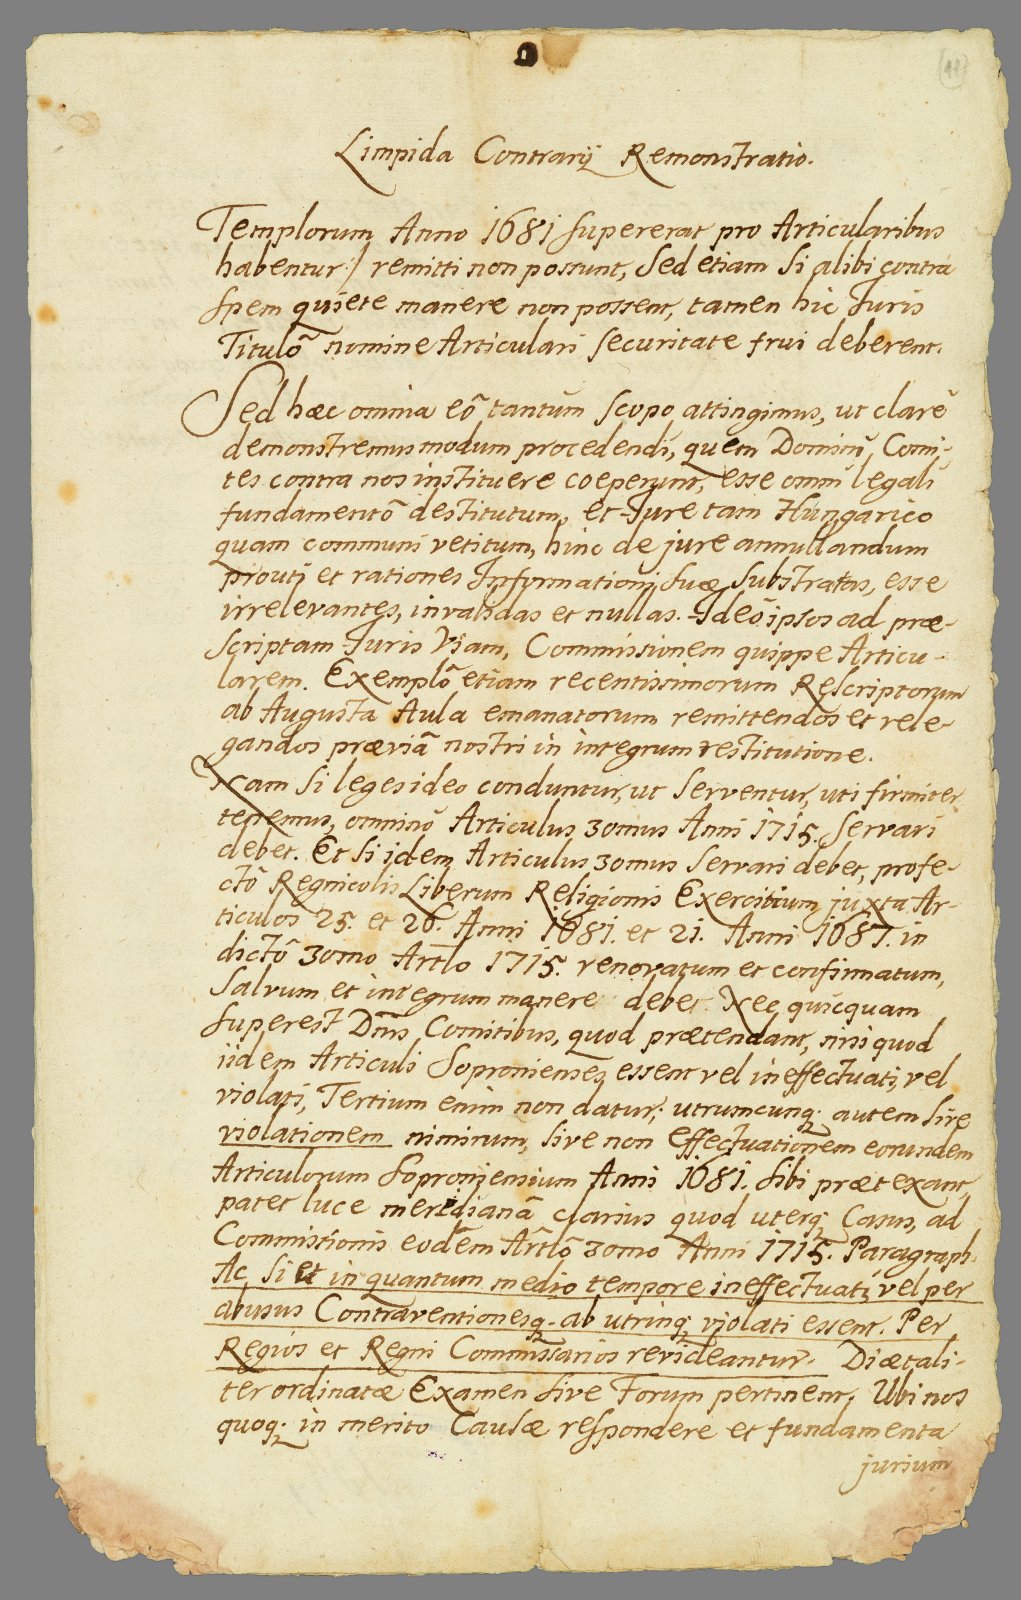 (11)
Limpida Contrarij Remonstratio.
Templorum Anno 1681 supererat pro Articularibus
habentur :/ remitti non possunt, sed etiam si alibi contra
spem quiete manere non possent, tamen hic Juris
Titulô nomine Articulari securitate frui deberent.
Sed hæc omnia eô tantum scopo attingimus, ut clarè
demonstremus modum procedendi, quem Domini Comi-
tes contra nos instituere coeperunt, esse omni legali
fundamentô destitutum, et Jure tam Hungarico
quam communi vetitum, hinc de jure annullandum
prouti et rationes Informationi suæ substratas, esse
irrelevantes, invalidas et nullas. Ideò ipsos ad præ-
scriptam Juris Viam, Commissionem quippe Articu-
larem. Exemplô etiam recentissimorum Rescriptorum
ab Augusta Aula emanatorum remittendos et rele-
gandos præviâ nostri in integrum restitutione.
Nam si leges ideo conduntur, ut serventur, uti firmiter
tenemus, omninò Articulus 30mus Anni 1715. servari
debet. Et si idem Articulus 30mus servari debet, profe-
ctô Regnicolis Liberum Religionis Exercitium juxta Ar-
ticulos 25. et 26. Anni 1681. et 21. Anni 1687. in
dictô 30mo Artlo 1715. renovatum et confirmatum,
salvum et integrum manere debet. Nec quicquam
superest Dnis Comitibus, quod prætendant, nisi quod
iidem Articuli Sopronienses essent vel ineffectuati, vel
violati, Tertium enim non datur; utrumcunq; autem sive
violationem nimirum, sive non effectuationem eorundem
Articulorum Soproniensium Anni 1681. sibi prætexant,
patet luce meridianâ clarius quod uterq; Casus, ad
Commissionis eodem Artlô 30mo Anni 1715. Paragraph.
Ac si et in quantum medio tempore ineffectuati, vel per
abusus Contraventionesq; ab utrinq; violati essent. Per
Regios et Regni Commissarios revideantur. Diætali-
ter ordinatæ Examen sive Forum pertinent. Ubi nos
quoq; in merito Causæ respondere et fundamenta
jurium